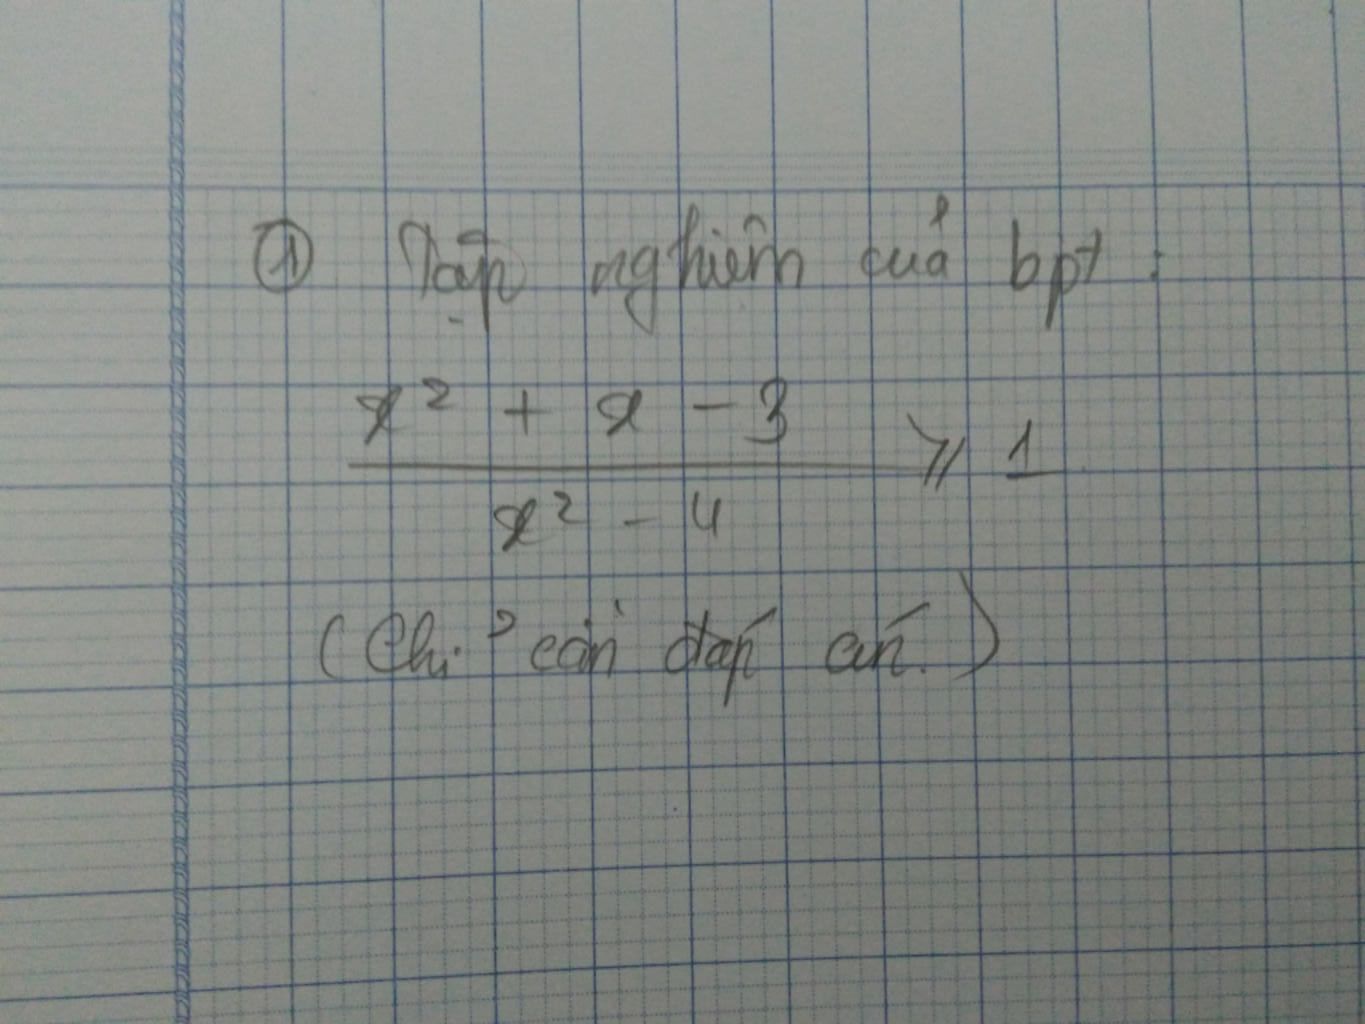 ① Tập nghiệm của bpt :
x² + x - 3
───────── ⩾ 1
x² - 4
(Chỉ cần đáp án.)